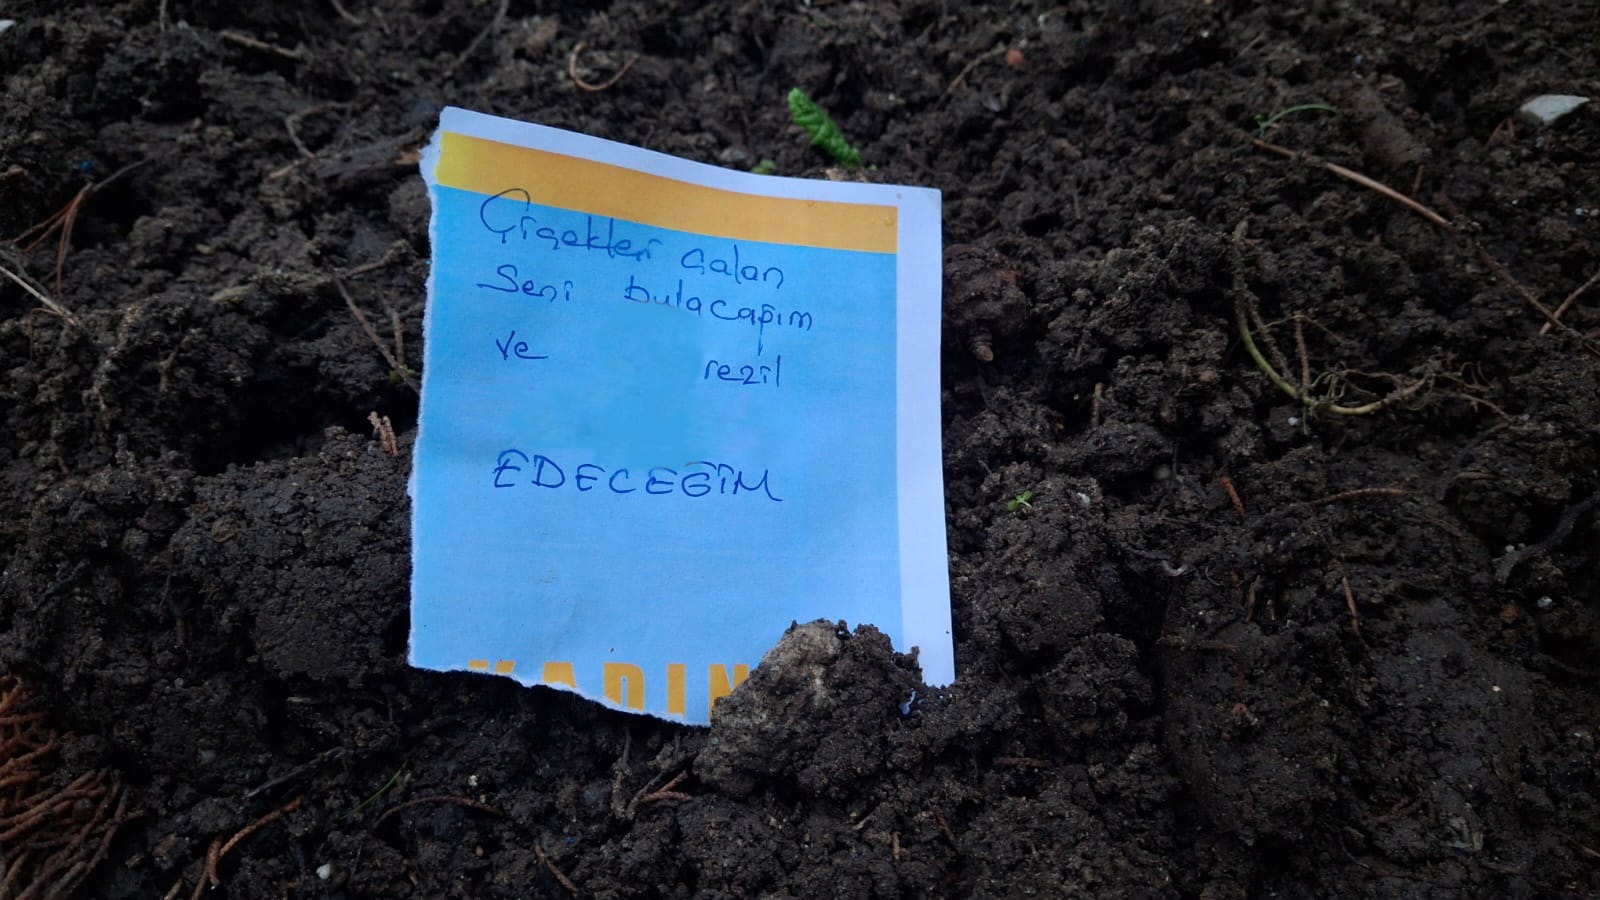 Çiçekleri çalan
Seni bulacağım
ve rezil
EDECEĞİM
KADIN